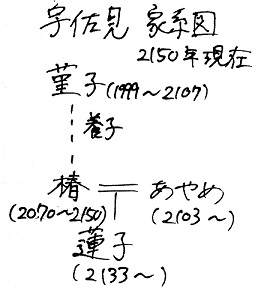 宇佐見 家系図
2150年現在
菫子(1999～2107)
養子
椿 あやめ
(2070～2150) (2103～)
蓮子
(2133～)